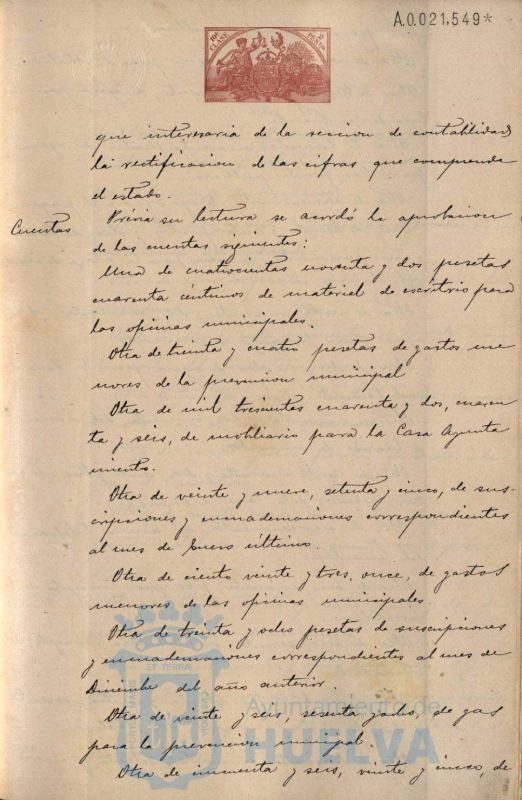 A.0.021,549*
10ª CLASE
2 PESETAS
que interesaria de la seccion de contabilidad
la rectificacion de las cifras que comprende
el estado.
Cuentas
Prévia su lectura se acordó la aprobacion
de las cuentas sigientes:
Una de cuatrocientas noventa y dos pesetas
cuarenta céntimos de material de escritrio para
las oficinas municipales.
Otra de treinta y cuatro pesetas de gastos me
nores de la prevencion municipal
Otra de mil trescientas cuarenta y dos, cuaren
ta y seis, de mobliario para la Casa Ayunta
miento.
Otra de veinte y nueve, setenta y cinco, de sus-
cripciones y encuadernaciones correspondientes
al mes de Enero último.
Otra de ciento veinte y tres, once, de gastos
menores de las oficinas municipales.
Otra de treinta y ocho pesetas de suscripciones
y encuadernaciones correspondientes al mes de
Diciembre del año anterior.
Otra de veinte y seis, sesenta y dos, de gas
para la prevencion municipal.
Otra de cincuenta y seis, veinte y cinco, de
Ayuntamiento de
HUELVA